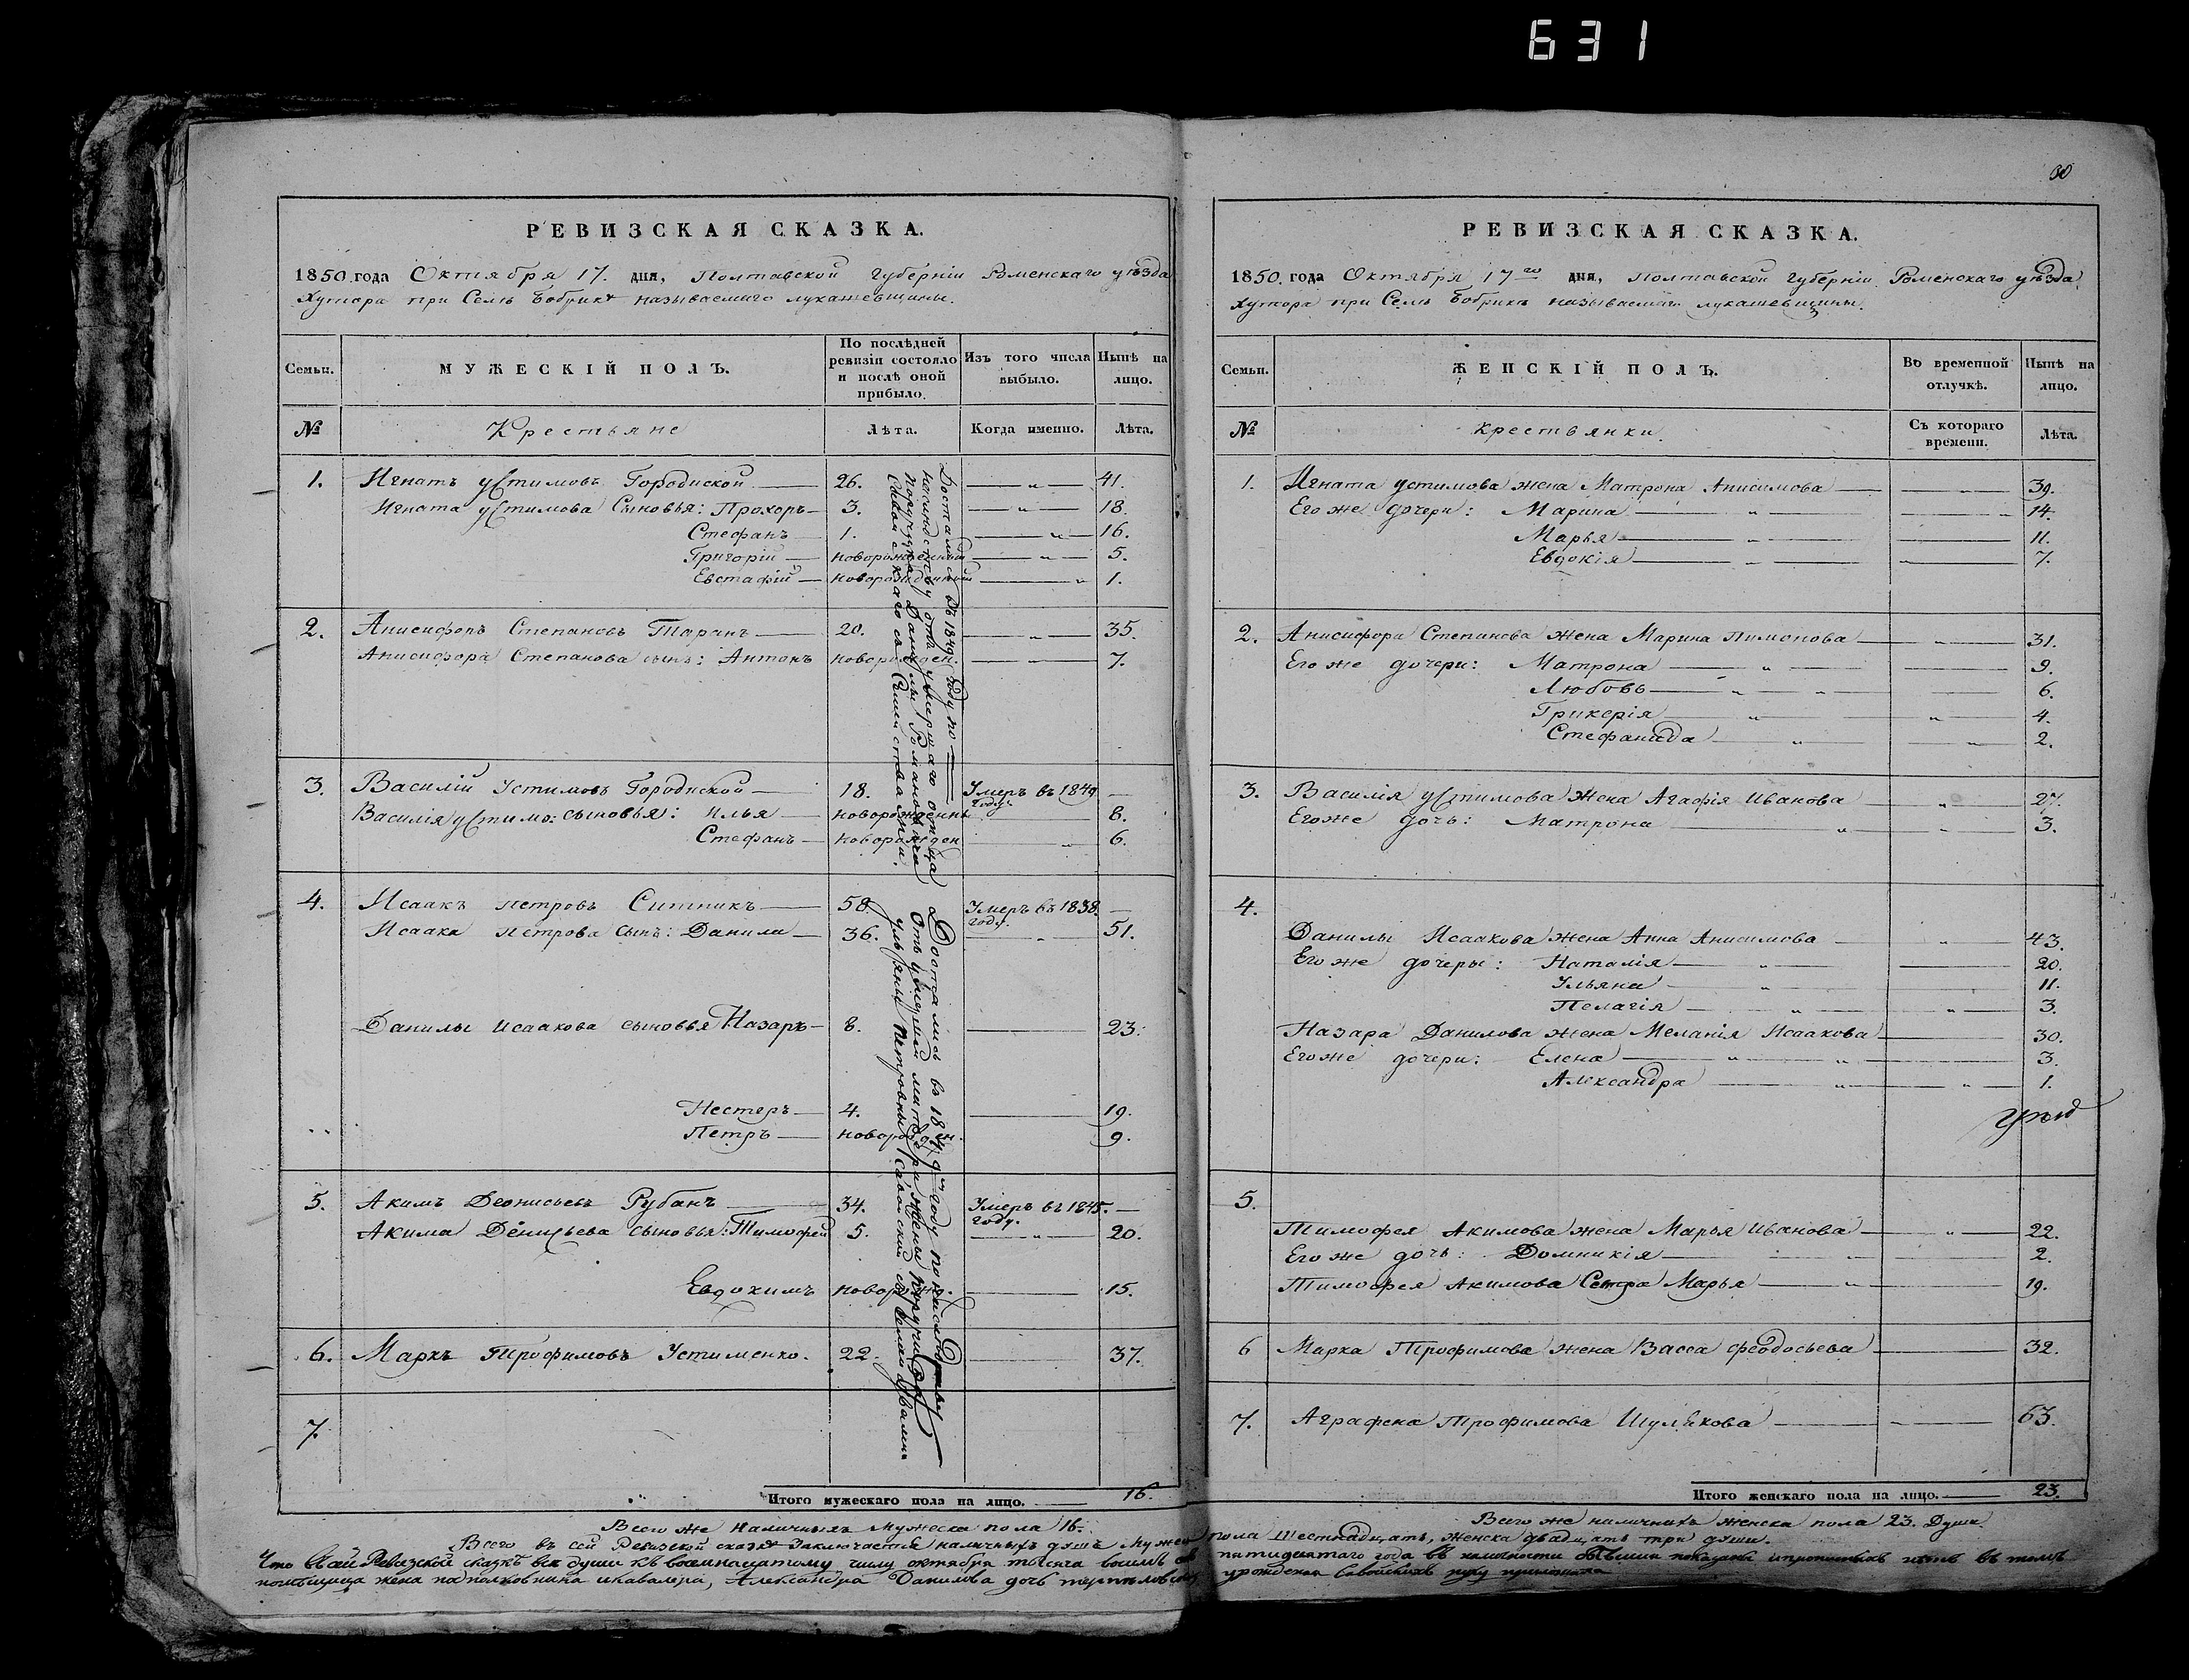 631
РЕВИЗСКАЯ СКАЗКА.
1850 года Октября 17. дня, Полтавской Губерніи Роменскаго уѣзда
Хутора при Селѣ Бобрикѣ называемаго Лукашевщины.
Семьи.
МУЖЕСКІЙ ПОЛЪ.
По послѣдней ревизіи состояло и послѣ оной прибыло.
Изъ того числа выбыло.
Нынѣ на лицо.
№
Крестьяне
Лѣта.
Когда именно.
Лѣта.
1. Игнатъ Устимовъ Городиской 26. 41.
Игната Устимова Сыновья: Прохоръ 3. 18.
Стефанъ 1. 16.
Григорій новорожденный 5.
Евстафій новорожденный 1.
2. Анисифоръ Степановъ Таранъ 20. 35.
Анисифора Степанова сынъ: Антонъ новорожден. 7.
3. Василій Устимовъ Городиской 18. Умеръ въ 1849 году.
Василія Устимо: сыновья: Илья новорожденны 8.
Стефанъ новорожден 6.
4. Исаакъ Петровъ Ситникъ 58. Умеръ въ 1838. году.
Исаака Петрова сынъ: Данила 36. 51.
Данилы Исаакова сыновья Назаръ 8. 23.
Нестеръ 4. 19.
Петръ новорожден. 9.
5. Акимъ Деонисьевъ Рубанъ 34. Умеръ въ 1845. году.
Акима Денисьева сыновья: Тимофей 5. 20.
Евдокимъ новорож. 15.
6. Маркъ Трофимовъ Устименко. 22. 37.
7.
Достались въ 1849. году по
наслѣдству отъ умершаго отца
порутчика Данилы Романовича
Итого мужескаго пола на лицо. 16.
Всего же наличныхъ мужеска пола 16.
80
РЕВИЗСКАЯ СКАЗКА.
1850. года Октября 17го дня, Полтавской Губерніи Роменскаго уѣзда
Хутора при Селѣ Бобрикѣ называемаго Лукашевщины.
Семьи.
ЖЕНСКІЙ ПОЛЪ.
Во временной отлучкѣ.
Нынѣ на лицо.
№
Крестьянки.
Съ котораго времени.
Лѣта.
1. Игната Устимова жена Матрона Анисимова 39.
Его же дочери: Марина 14.
Марья 11.
Евдокія 7.
2. Анисифора Степанова жена Марина Пимонова 31.
Его же дочери: Матрона 9.
Любовь 6.
Гликерія 4.
Стефанида 2.
3. Василія Устимова жена Агафія Иванова 27.
Его же дочь: Матрона 3.
4.
Данилы Исаакова жена Анна Анисимова 43.
Его же дочеры: Наталія 20.
Ульяна 11.
Пелагія 3.
Назара Данилова жена Меланія Исаакова 30.
Его же дочери: Елена 3.
Александра 1.
5.
Тимофея Акимова жена Марья Иванова 22.
Его же дочь: Домникія 2.
Тимофея Акимова Сестра Марья 19.
6 Марка Трофимова жена Васса Феодосьева 32.
7. Аграфена Трофимова Шулякова 63.
Итого женскаго пола на лицо. 23.
Всего же наличныхъ женска пола 23. Души.
Всего въ сей Ревизской сказкѣ заключается наличныхъ душъ мужеска пола Шестнадцать, женска двадцать три души.